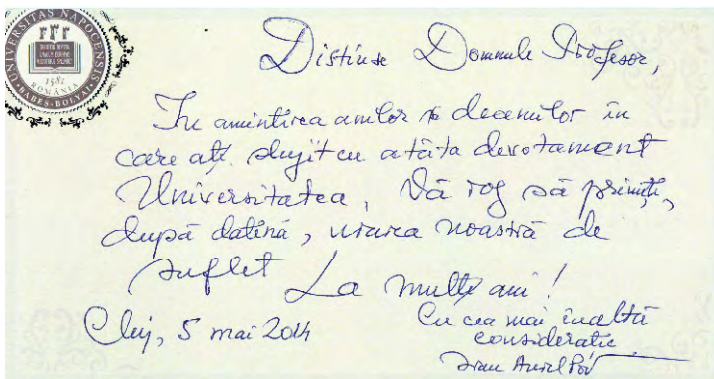 UNIVERSITAS NAPOCENSIS
1581
ROMÂNIA
BABEȘ-BOLYAI
Distinse Domnule Profesor,
În amintirea anilor și deceniilor în
care ați slujit cu atâta devotament
Universitatea, Vă rog să primiți,
după datină, urarea noastră de
suflet La mulți ani!
Cluj, 5 mai 2014
Cu cea mai înaltă
considerație
Ioan Aurel Pop